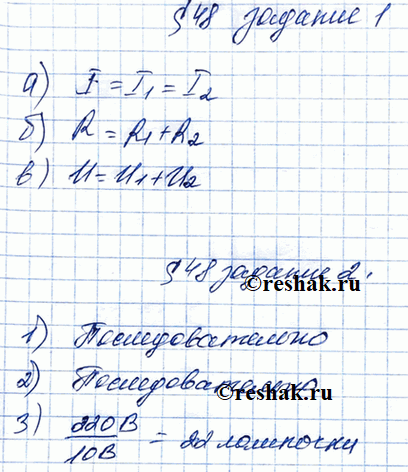 §48 задание 1
а) I = I₁ = I₂
б) R = R₁ + R₂
в) U = U₁ + U₂
§48 задание 2.
©reshak.ru
1) Последовательно
2) Последовательно
©reshak.ru
3) 220В/10В = 22 лампочки